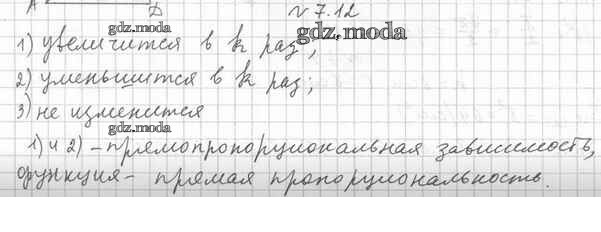 A D № 7.12
gdz.moda
gdz.moda
1) увеличится в k раз;
2) уменьшится в k раз;
gdz.moda
3) не изменится
gdz.moda
1) и 2) – прямопропорциональная зависимость,
функция – прямая пропорциональность.